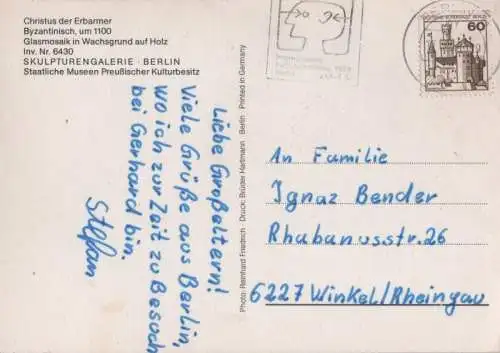 Christus der Erbarmer
Byzantinisch, um 1100
Glasmosaik in Wachsgrund auf Holz
Inv. Nr. 6430
SKULPTURENGALERIE · BERLIN
Staatliche Museen Preußischer Kulturbesitz
Liebe Großeltern!
Viele Grüße aus Berlin,
wo ich zur Zeit zu Besuch
bei Gerhard bin.
Stefan
Photo: Reinhard Friedrich · Druck: Brüder Hartmann · Berlin · Printed in Germany
60
An Familie
Ignaz Bender
Rhabanusstr. 26
6227 Winkel/Rheingau